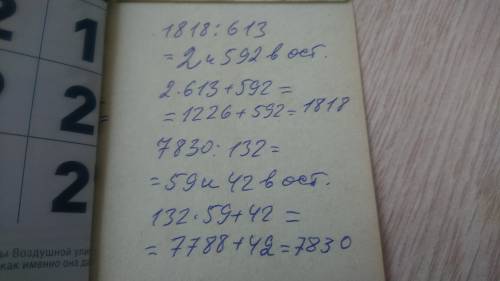 1818 : 613
= 2 и 592 в ост.
2 · 613 + 592 =
= 1226 + 592 = 1818
7830 : 132 =
= 59 и 42 в ост.
132 · 59 + 42 =
= 7788 + 42 = 7830
2 1
2
2
=
ы Воздушной ули
как именно она да